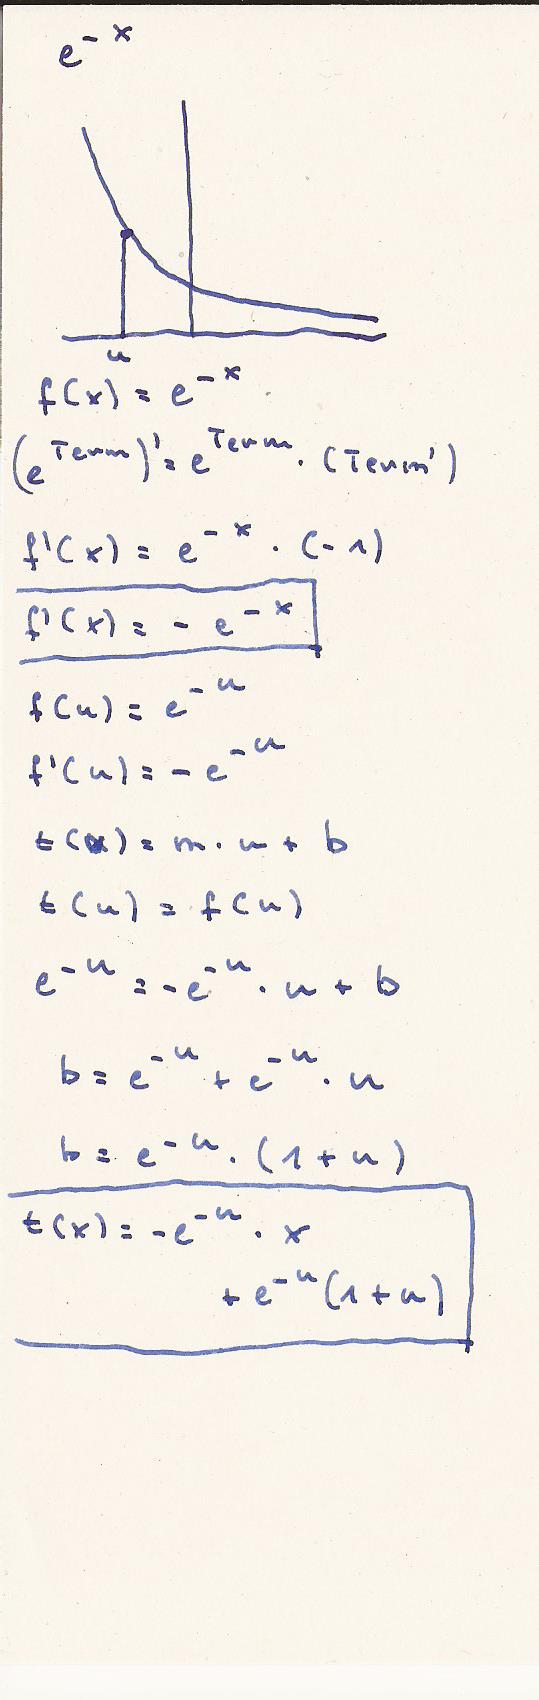 e^-x
u
f(x) = e^-x
(e^Term)' = e^Term · (Term')
f'(x) = e^-x · (-1)
f'(x) = - e^-x
f(u) = e^-u
f'(u) = - e^-u
t(u) = m · u + b
t(u) = f(u)
e^-u = -e^-u · u + b
b = e^-u + e^-u · u
b = e^-u · (1 + u)
t(x) = -e^-u · x
+ e^-u (1 + u)